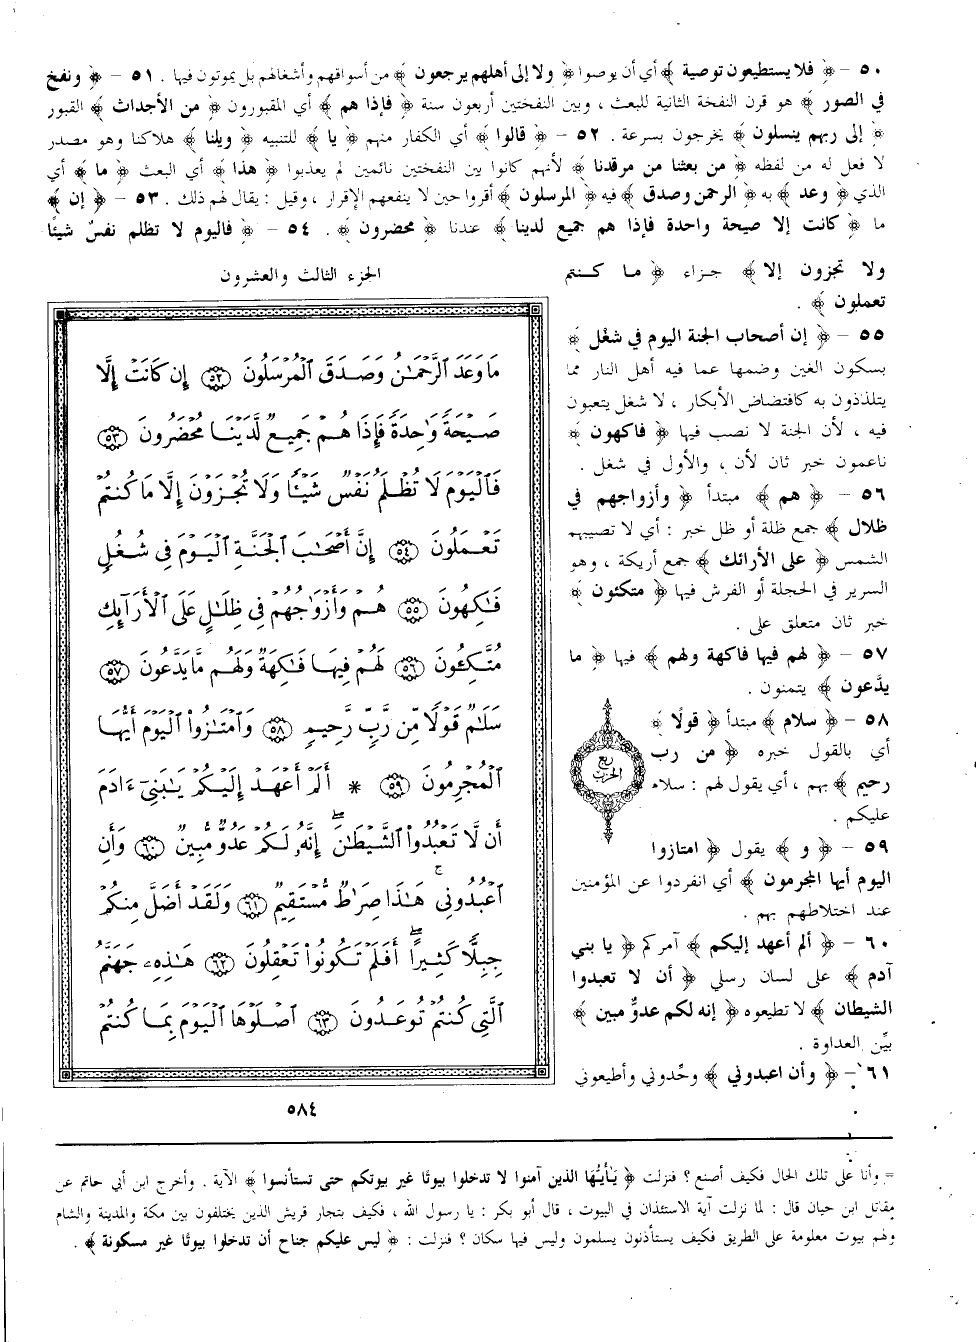 ٥٠ - ﴿ فلا يستطيعون توصية ﴾ أي أن يوصوا ﴿ ولا إلى أهلهم يرجعون ﴾ من أسواقهم وأشغالهم بل يموتون فيها . ٥١ - ﴿ ونفخ
في الصور ﴾ هو قرن النفخة الثانية للبعث ، وبين النفختين أربعون سنة ﴿ فإذا هم ﴾ أي المقبورون ﴿ من الأجداث ﴾ القبور
﴿ إلى ربهم ينسلون ﴾ يخرجون بسرعة . ٥٢ - ﴿ قالوا ﴾ أي الكفار منهم ﴿ يا ﴾ للتنبيه ﴿ ويلنا ﴾ هلاكنا وهو مصدر
لا فعل له من لفظه ﴿ من بعثنا من مرقدنا ﴾ لأنهم كانوا بين النفختين نائمين لم يعذبوا ﴿ هذا ﴾ أي البعث ﴿ ما ﴾ أي
الذي ﴿ وعد ﴾ به ﴿ الرحمن وصدق ﴾ فيه ﴿ المرسلون ﴾ أقروا حين لا ينفعهم الإقرار ، وقيل : يقال لهم ذلك . ٥٣ - ﴿ إن ﴾
ما ﴿ كانت إلا صيحة واحدة فإذا هم جميع لدينا ﴾ عندنا ﴿ محضرون ﴾ . ٥٤ - ﴿ فاليوم لا تظلم نفسٌ شيئًا
ولا تجزون إلا ﴾ جزاء ﴿ ما كنتم
تعملون ﴾ .
٥٥ - ﴿ إن أصحاب الجنة اليوم في شغْل ﴾
بسكون الغين وضمها عما فيه أهل النار مما
يتلذذون به كافتضاض الأبكار ، لا شغل يتعبون
فيه ، لأن الجنة لا نصب فيها ﴿ فاكهون ﴾
ناعمون خبر ثان لأن ، والأول في شغل .
٥٦ - ﴿ هم ﴾ مبتدأ ﴿ وأزواجهم في
ظلال ﴾ جمع ظلة أو ظل خبر : أي لا تصيبهم
الشمس ﴿ على الأرائك ﴾ جمع أريكة ، وهو
السرير في الحجلة أو الفرش فيها ﴿ متكئون ﴾
خبر ثان متعلق على .
٥٧ - ﴿ لهم فيها فاكهة ولهم ﴾ فيها ﴿ ما
يدَّعون ﴾ يتمنون .
٥٨ - ﴿ سلام ﴾ مبتدأ ﴿ قولًا ﴾
أي بالقول خبره ﴿ من رب
رحيم ﴾ بهم ، أي يقول لهم : سلام
عليكم .
٥٩ - ﴿ و ﴾ يقول ﴿ امتازوا
اليوم أيها المجرمون ﴾ أي انفردوا عن المؤمنين
عند اختلاطهم بهم .
٦٠ - ﴿ ألم أعهد إليكم ﴾ آمركم ﴿ يا بني
آدم ﴾ على لسان رسلي ﴿ أن لا تعبدوا
الشيطان ﴾ لا تطيعوه ﴿ إنه لكم عدوٌّ مبين ﴾
بيِّن العداوة .
٦١ - ﴿ وأن اعبدوني ﴾ وحِّدوني وأطيعوني
ربع
الحزب
الجزء الثالث والعشرون
مَا وَعَدَ ٱلرَّحْمَٰنُ وَصَدَقَ ٱلْمُرْسَلُونَ ٥٢ إِن كَانَتْ إِلَّا
صَيْحَةً وَٰحِدَةً فَإِذَا هُمْ جَمِيعٌ لَّدَيْنَا مُحْضَرُونَ ٥٣
فَٱلْيَوْمَ لَا تُظْلَمُ نَفْسٌ شَيْـًٔا وَلَا تُجْزَوْنَ إِلَّا مَا كُنتُمْ
تَعْمَلُونَ ٥٤ إِنَّ أَصْحَٰبَ ٱلْجَنَّةِ ٱلْيَوْمَ فِى شُغُلٍ
فَٰكِهُونَ ٥٥ هُمْ وَأَزْوَٰجُهُمْ فِى ظِلَٰلٍ عَلَى ٱلْأَرَآئِكِ
مُتَّكِـُٔونَ ٥٦ لَهُمْ فِيهَا فَٰكِهَةٌ وَلَهُم مَّا يَدَّعُونَ ٥٧
سَلَٰمٌ قَوْلًا مِّن رَّبٍّ رَّحِيمٍ ٥٨ وَٱمْتَٰزُوا۟ ٱلْيَوْمَ أَيُّهَا
ٱلْمُجْرِمُونَ ٥٩ * أَلَمْ أَعْهَدْ إِلَيْكُمْ يَٰبَنِىٓ ءَادَمَ
أَن لَّا تَعْبُدُوا۟ ٱلشَّيْطَٰنَ ۖ إِنَّهُۥ لَكُمْ عَدُوٌّ مُّبِينٌ ٦٠ وَأَنِ
ٱعْبُدُونِى ۚ هَٰذَا صِرَٰطٌ مُّسْتَقِيمٌ ٦١ وَلَقَدْ أَضَلَّ مِنكُمْ
جِبِلًّا كَثِيرًا ۖ أَفَلَمْ تَكُونُوا۟ تَعْقِلُونَ ٦٢ هَٰذِهِۦ جَهَنَّمُ
ٱلَّتِى كُنتُمْ تُوعَدُونَ ٦٣ ٱصْلَوْهَا ٱلْيَوْمَ بِمَا كُنتُمْ
٥٨٤
= وأنا على تلك الحال فكيف أصنع ؟ فنزلت ﴿ يَٰأيُّهَا الذين آمنوا لا تدخلوا بيوتًا غير بيوتكم حتى تستأنسوا ﴾ الآية . وأخرج ابن أبي حاتم عن
مقاتل ابن حيان قال : لما نزلت آية الاستئذان في البيوت ، قال أبو بكر : يا رسول الله ، فكيف بتجار قريش الذين يختلفون بين مكة والمدينة والشام
ولهم بيوت معلومة على الطريق فكيف يستأذنون يسلمون وليس فيها سكان ؟ فنزلت : ﴿ ليس عليكم جناح أن تدخلوا بيوتًا غير مسكونة ﴾ .